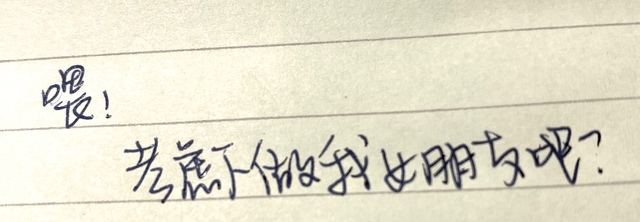 喂！
考虑下做我女朋友吧？